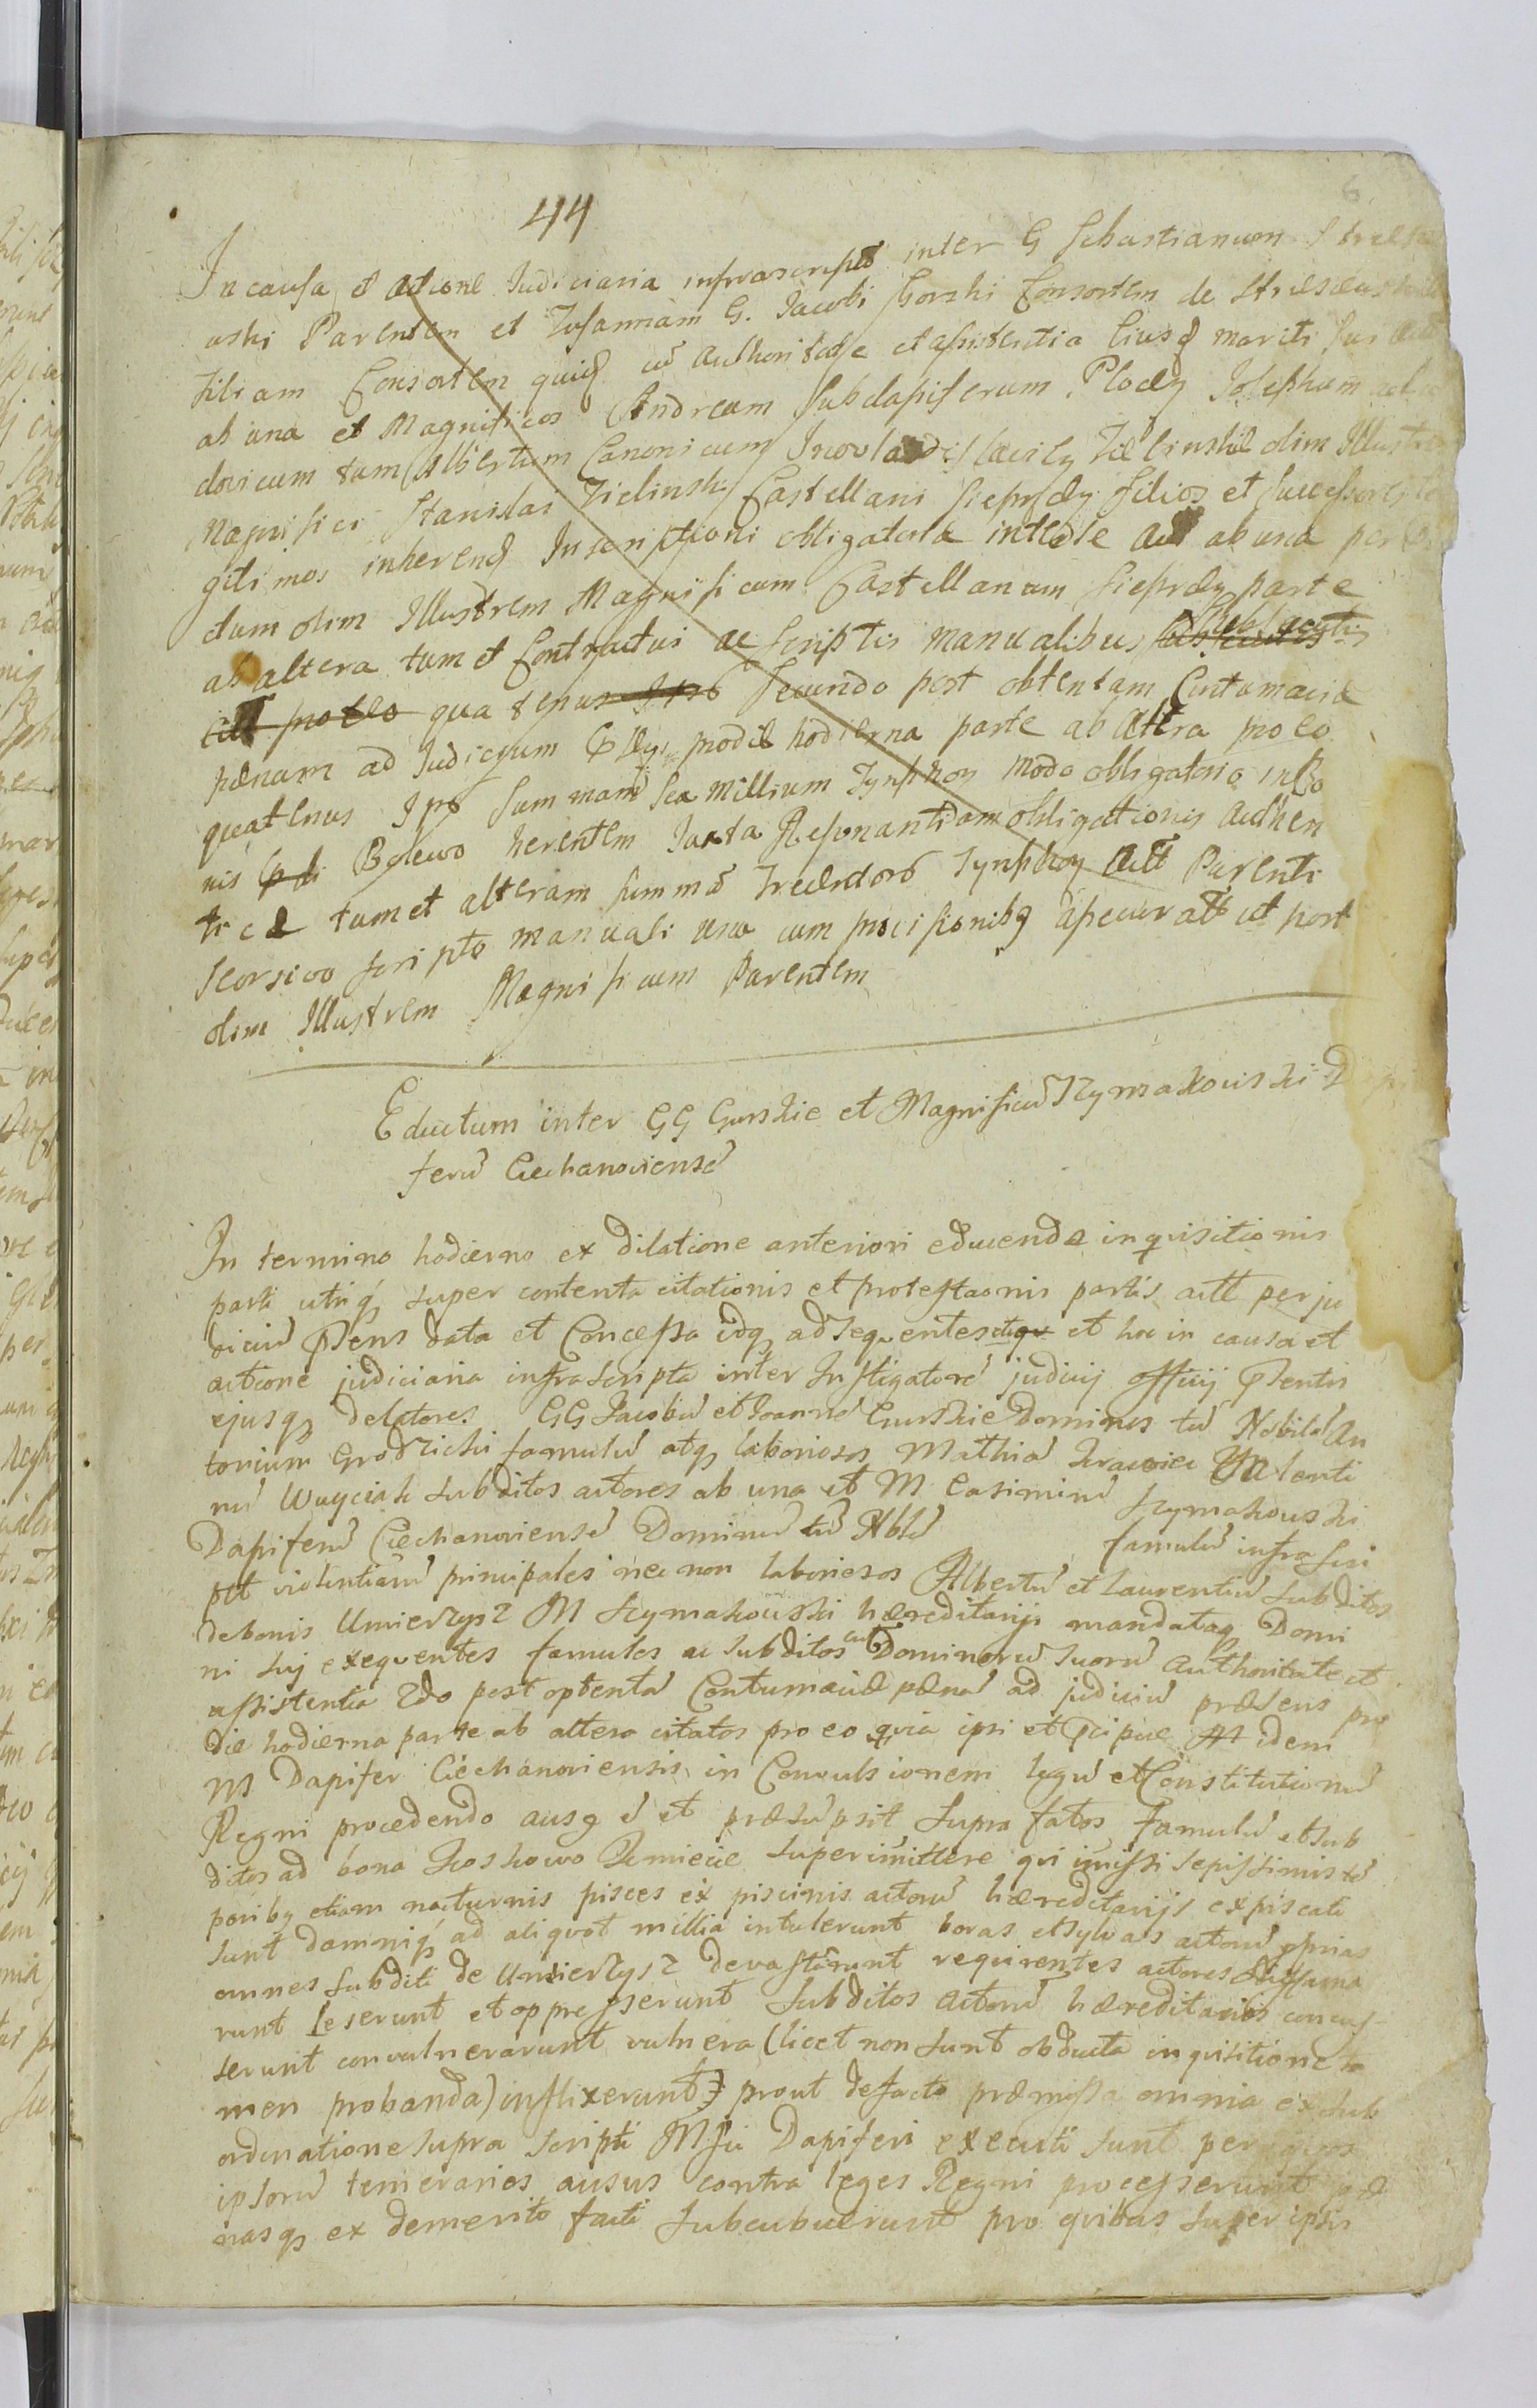 44
6
In causa et actione Judiciaria infrascripta inter G Sebastianum
uski Parentem et Zusannam G. Jacobi Gorski Consortem de
filiam Consortem quidẽ cũ Authoritate et assistentia Eiusdẽ mariti sui
ab una et Magnificos Andream Subdapiferum Plocẽ Josephum
dovicum tum Albertum Canonicum Inowladislaviẽ Zielinskie olim Illustris
Magnifici Stanislai Zielinski Castellani Sieprcẽ filios et Successores
gitimos inherendo Inscriptioni obligatoria inter se ab una per
dum olim Illustrem Magnificum Castellanum Sieprcẽ parte
ab altera tum et Contractui ac scriptis manualibus
pro eo quatenus Ipso Secundo post obtentam Contumaciæ
pænam ad Judicyum prodie hodierna parte ab Altera pro eo
quatenus Ipsi Summam Sex Millium Tynphon modo obligatorio in Bo
nis Bolewo herentem Juxta Resonantiam obligationis Authen
ticæ tum et alteram summã Trecentorũ Tynphon Parenti
seorsivo scripto manuali uno cum provisionibq assecurat ut post
olim Illustrem Magnificum Parentem
Eductum inter GG Gurskie et Magnificũ Szymakowski
ferũ Ciechanoviensẽ
In termino hodierno ex dilatione anteriori educendæ inquisitionis
parti utriq super contenta citationis et protestaonis partis actt per ju
diciũ pñens data et Concessa idq ad sequentes et hoc in causa et
actione judiciaria infrascripta inter Instigatorẽ judicij officij pñentis
ejusq delatores GG Jacobũ et Joannẽ Gurskie Dominos tũ Nobilẽ An
tonium Grodzicki famulũ atq laboriosos Mathiã Krawiec Valenti
nũ Woyciak subditos actores ab una et M. Casimirũ Szymakowski
Dapiferũ Ciechanoviensẽ Dominũ tũ Nblẽ famulũ infra scri
ptt violentiarũ principales nec non laboriosos Albertũ et Laurentiũ subditos
de bonis Umierzysz M Szymakowski hæreditarijs mandataq Domi
ni sui exequentes famulos ac subditos cum Dominorũ suorũ authoritate et
assistentia 2do post optentã Contumaciæ pænã ad judiciũ præsens pro
die hodierna parte ab altera citatos pro eo quia ipsi et præcipue idem
M Dapifer Ciechanoviensis in Convulsionem legũ et Constitutionũ
Regni procedendo ausq ẽ et præsũpsit supra fatos famulũ et sub
ditos ad bona Koskowo Kmiecie superimittere qui imissi sepissimis tẽ
poribq etiam nocturnis pisces ex piscinis actorũ hæreditarijs expiscati
sunt damniq ad aliquot millia intulerunt boras et sylvas actorũ pprias
omnes subditi de Umierzysz devastarunt requirentes actores diffama
runt leserunt et oppresserunt subditos actorũ hæreditarios concus
serunt convulnerarunt vulnera (licet non sunt obducta inquisitione ta
men probanda) inflixerunt prout defacto præmissa omnia ex sub
ordinatione supra scripti Mfci Dapiferi executi sunt per quos
ipsorũ temerarios ausus contra leges Regni processerunt pæ
nasq ex demerito facti subcubuerunt pro quibus super ipsis